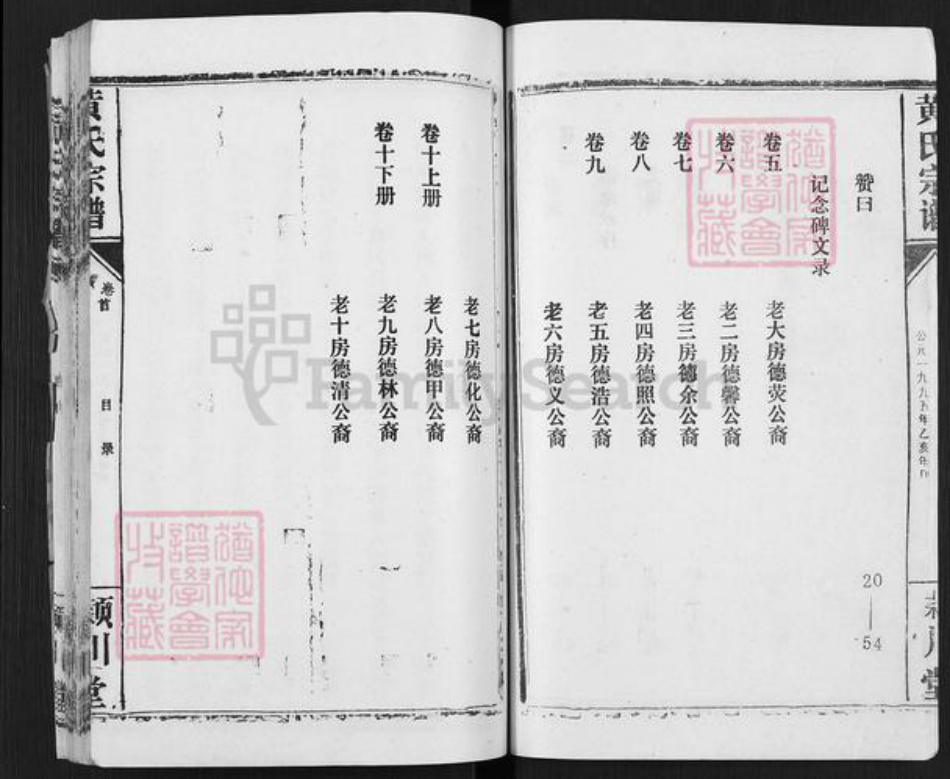 黄氏宗谱
公元一九九五年乙亥年
堂
赞曰
20—54
记念碑文录
卷五
老大房德荧公裔
卷六
老二房德馨公裔
卷七
老三房德余公裔
卷八
老四房德照公裔
卷九
老五房德浩公裔
老六房德义公裔
老七房德化公裔
卷十上册
老八房德甲公裔
卷十下册
老九房德林公裔
老十房德清公裔
黄氏宗谱
卷首
目录
颍川堂
譜學會
收藏
FamilySearch